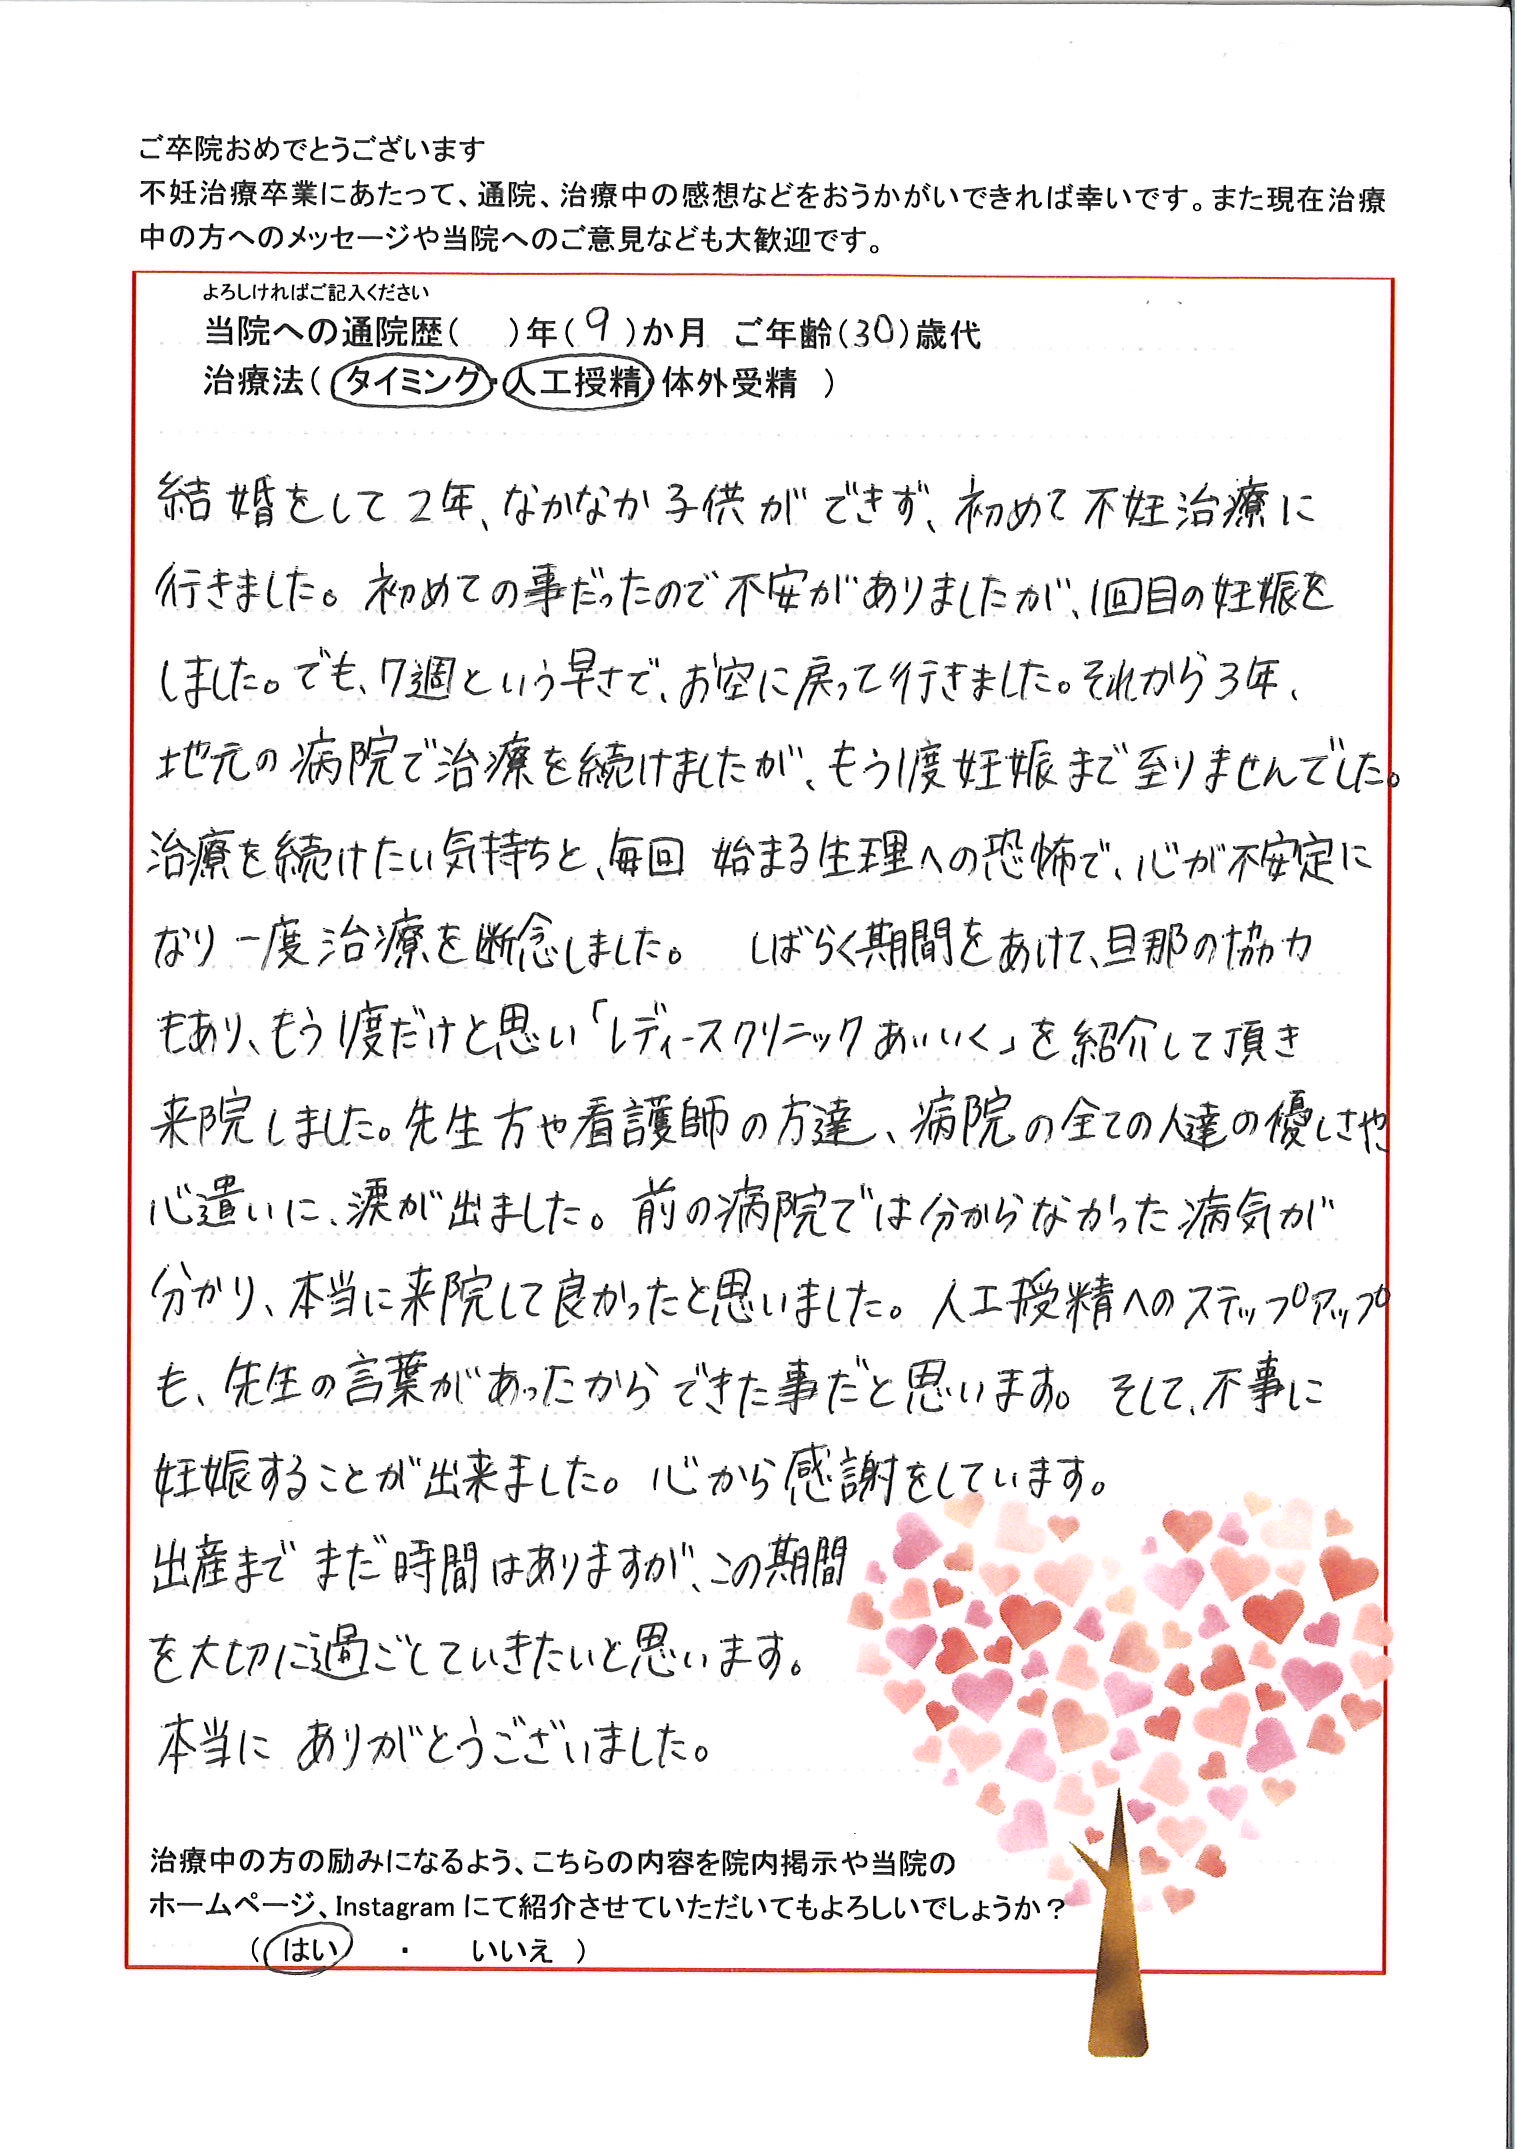 ご卒院おめでとうございます
不妊治療卒業にあたって、通院、治療中の感想などをおうかがいできれば幸いです。また現在治療
中の方へのメッセージや当院へのご意見なども大歓迎です。
よろしければご記入ください
当院への通院歴(　)年(9)か月 ご年齢(30)歳代
治療法(タイミング・人工授精・体外受精 )
結婚をして2年、なかなか子供ができず、初めて不妊治療に
行きました。初めての事だったので不安がありましたが、1回目の妊娠を
しました。でも、7週という早さで、お空に戻って行きました。それから3年、
地元の病院で治療を続けましたが、もう1度妊娠まで至りませんでした。
治療を続けたい気持ちと、毎回 始まる生理への恐怖で、心が不安定に
なり一度治療を断念しました。 しばらく期間をあけて、旦那の協力
もあり、もう1度だけと思い「レディースクリニックあいいく」を紹介して頂き
来院しました。先生方や看護師の方達、病院の全ての人達の優しさや
心遣いに、涙が出ました。前の病院では分からなかった病気が
分かり、本当に来院して良かったと思いました。人工授精へのステップアップ
も、先生の言葉があったからできた事だと思います。そして、不事に
妊娠することが出来ました。心から感謝をしています。
出産まで まだ時間はありますが、この期間
を大切に過ごしていきたいと思います。
本当に ありがとうございました。
治療中の方の励みになるよう、こちらの内容を院内掲示や当院の
ホームページ、Instagramにて紹介させていただいてもよろしいでしょうか？
(はい ・ いいえ )